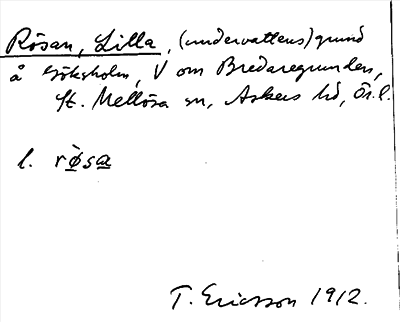 Rösan, Lilla, (undervattens)grund
å Göksholm, V om Bredaregrunden,
St. Mellösa sn, Askers hd, Ör.l.
l. rø̀sa
T. Ericsson 1912.